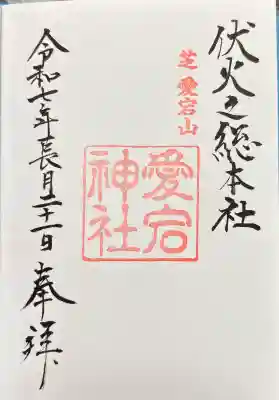 伏火之総本社
芝愛宕山
愛宕神社
令和七年長月二十一日 奉拝